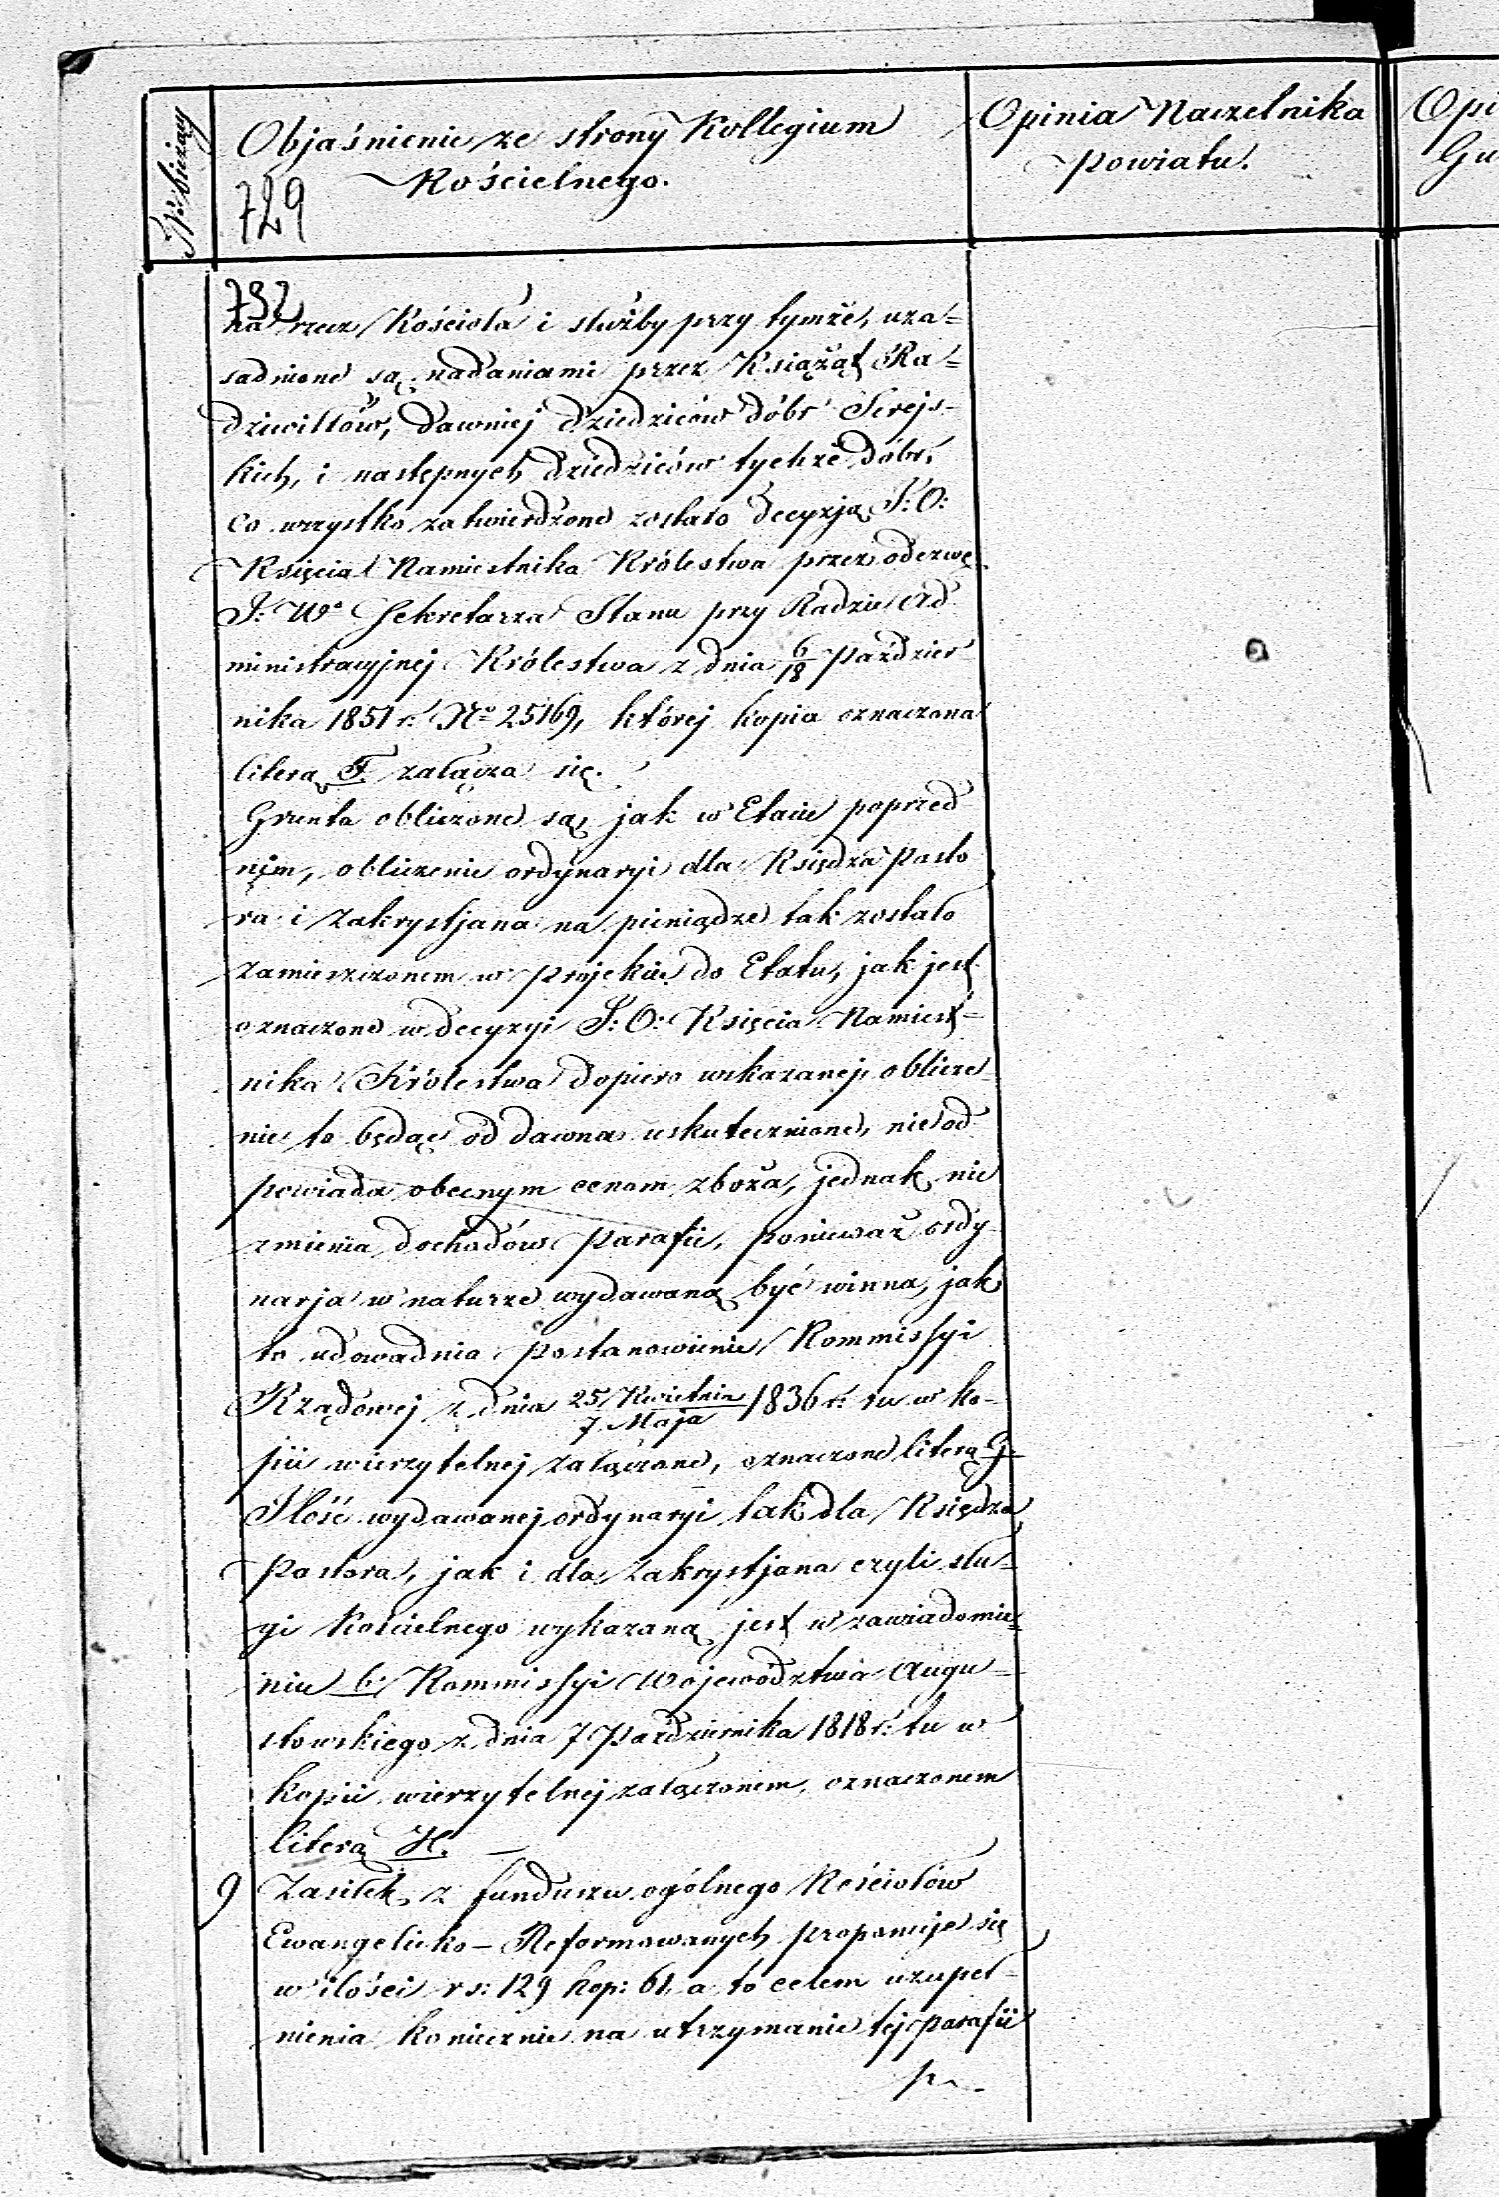 Nr. bieżący
Objaśnienie ze strony Kollegium
Kościelnego.
729
Opinia Naczelnika
Powiatu.
Opi
Gu
732
na rzecz Kościoła i służby przy tymże, uza-
sadnione są nadaniami przez Książąt Ra-
dziwiłłów, dawniej dziedziców dóbr Serejs-
kich, i następnych dziedziców tychże dóbr,
co wszystko zatwierdzone zostało decyzją J: O:
Księcia Namiestnika Królestwa przez odezwę
J: Wo Sekretarza Stanu przy Radzie Ad
ministracyjnej Królestwa z dnia 6/18 Paździer
nika 1851 r: No 25169, której kopia oznaczona
literą F. załącza się.
Grunta obliczone są, jak w Etacie poprzed
nim, obliczenie ordynaryi dla Księdza Pasto
ra i Zakrystjana na pieniądze tak zostało
zamieszczonem w projekcie do Etatu, jak jest
oznaczone w decyzyi J: O: Księcia Namiest-
nika Królestwa dopiero wskazanej, oblicze-
nie to będąc od dawna uskutecznione, nie od
powiada obecnym cenom zboża, jednak nie
zmienia dochodów Parafii, ponieważ ordy-
narja w naturze wydawaną być winna, jak
to udowadnia postanowienie Kommissyi
Rządowej z dnia 25 Kwietnia/7 Maja 1836 r: tu w ko-
pii wierzytelnej załączone, oznaczone literą G.
Ilość wydawanej ordynaryi tak dla Księdza
Pastora, jak i dla Zakrystjana czyli słu-
gi Kościelnego wykazaną jest w zawiadomie-
niu b: Kommissyi Województwa Augu-
stowskiego z dnia 7 Października 1818 r: tu w
kopii wierzytelnej załączonem, oznaczonem
literą H. –
9 Zasiłek z funduszu ogólnego Kościołów
Ewangelicko-Reformowanych proponuje się
w ilości rs: 129 kop: 61, a to celem uzupeł-
nienia koniecznie na utrzymanie tej parafii